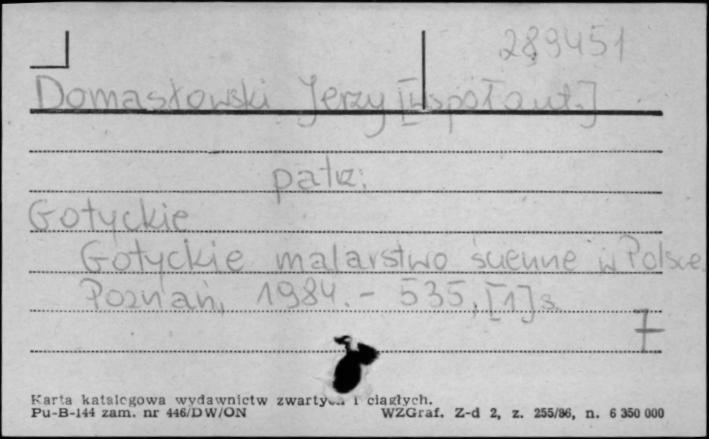 289451
Domasłowski Jerzy [współaut.]
patrz:
Gotyckie
Gotyckie malarstwo ścienne w Polsce.
Poznań, 1984. - 535, [1] s.
Karta katalogowa wydawnictw zwartych i ciągłych.
Pu-B-144 zam. nr 446/DW/ON WZGraf. Z-d 2, z. 255/86, n. 6 350 000